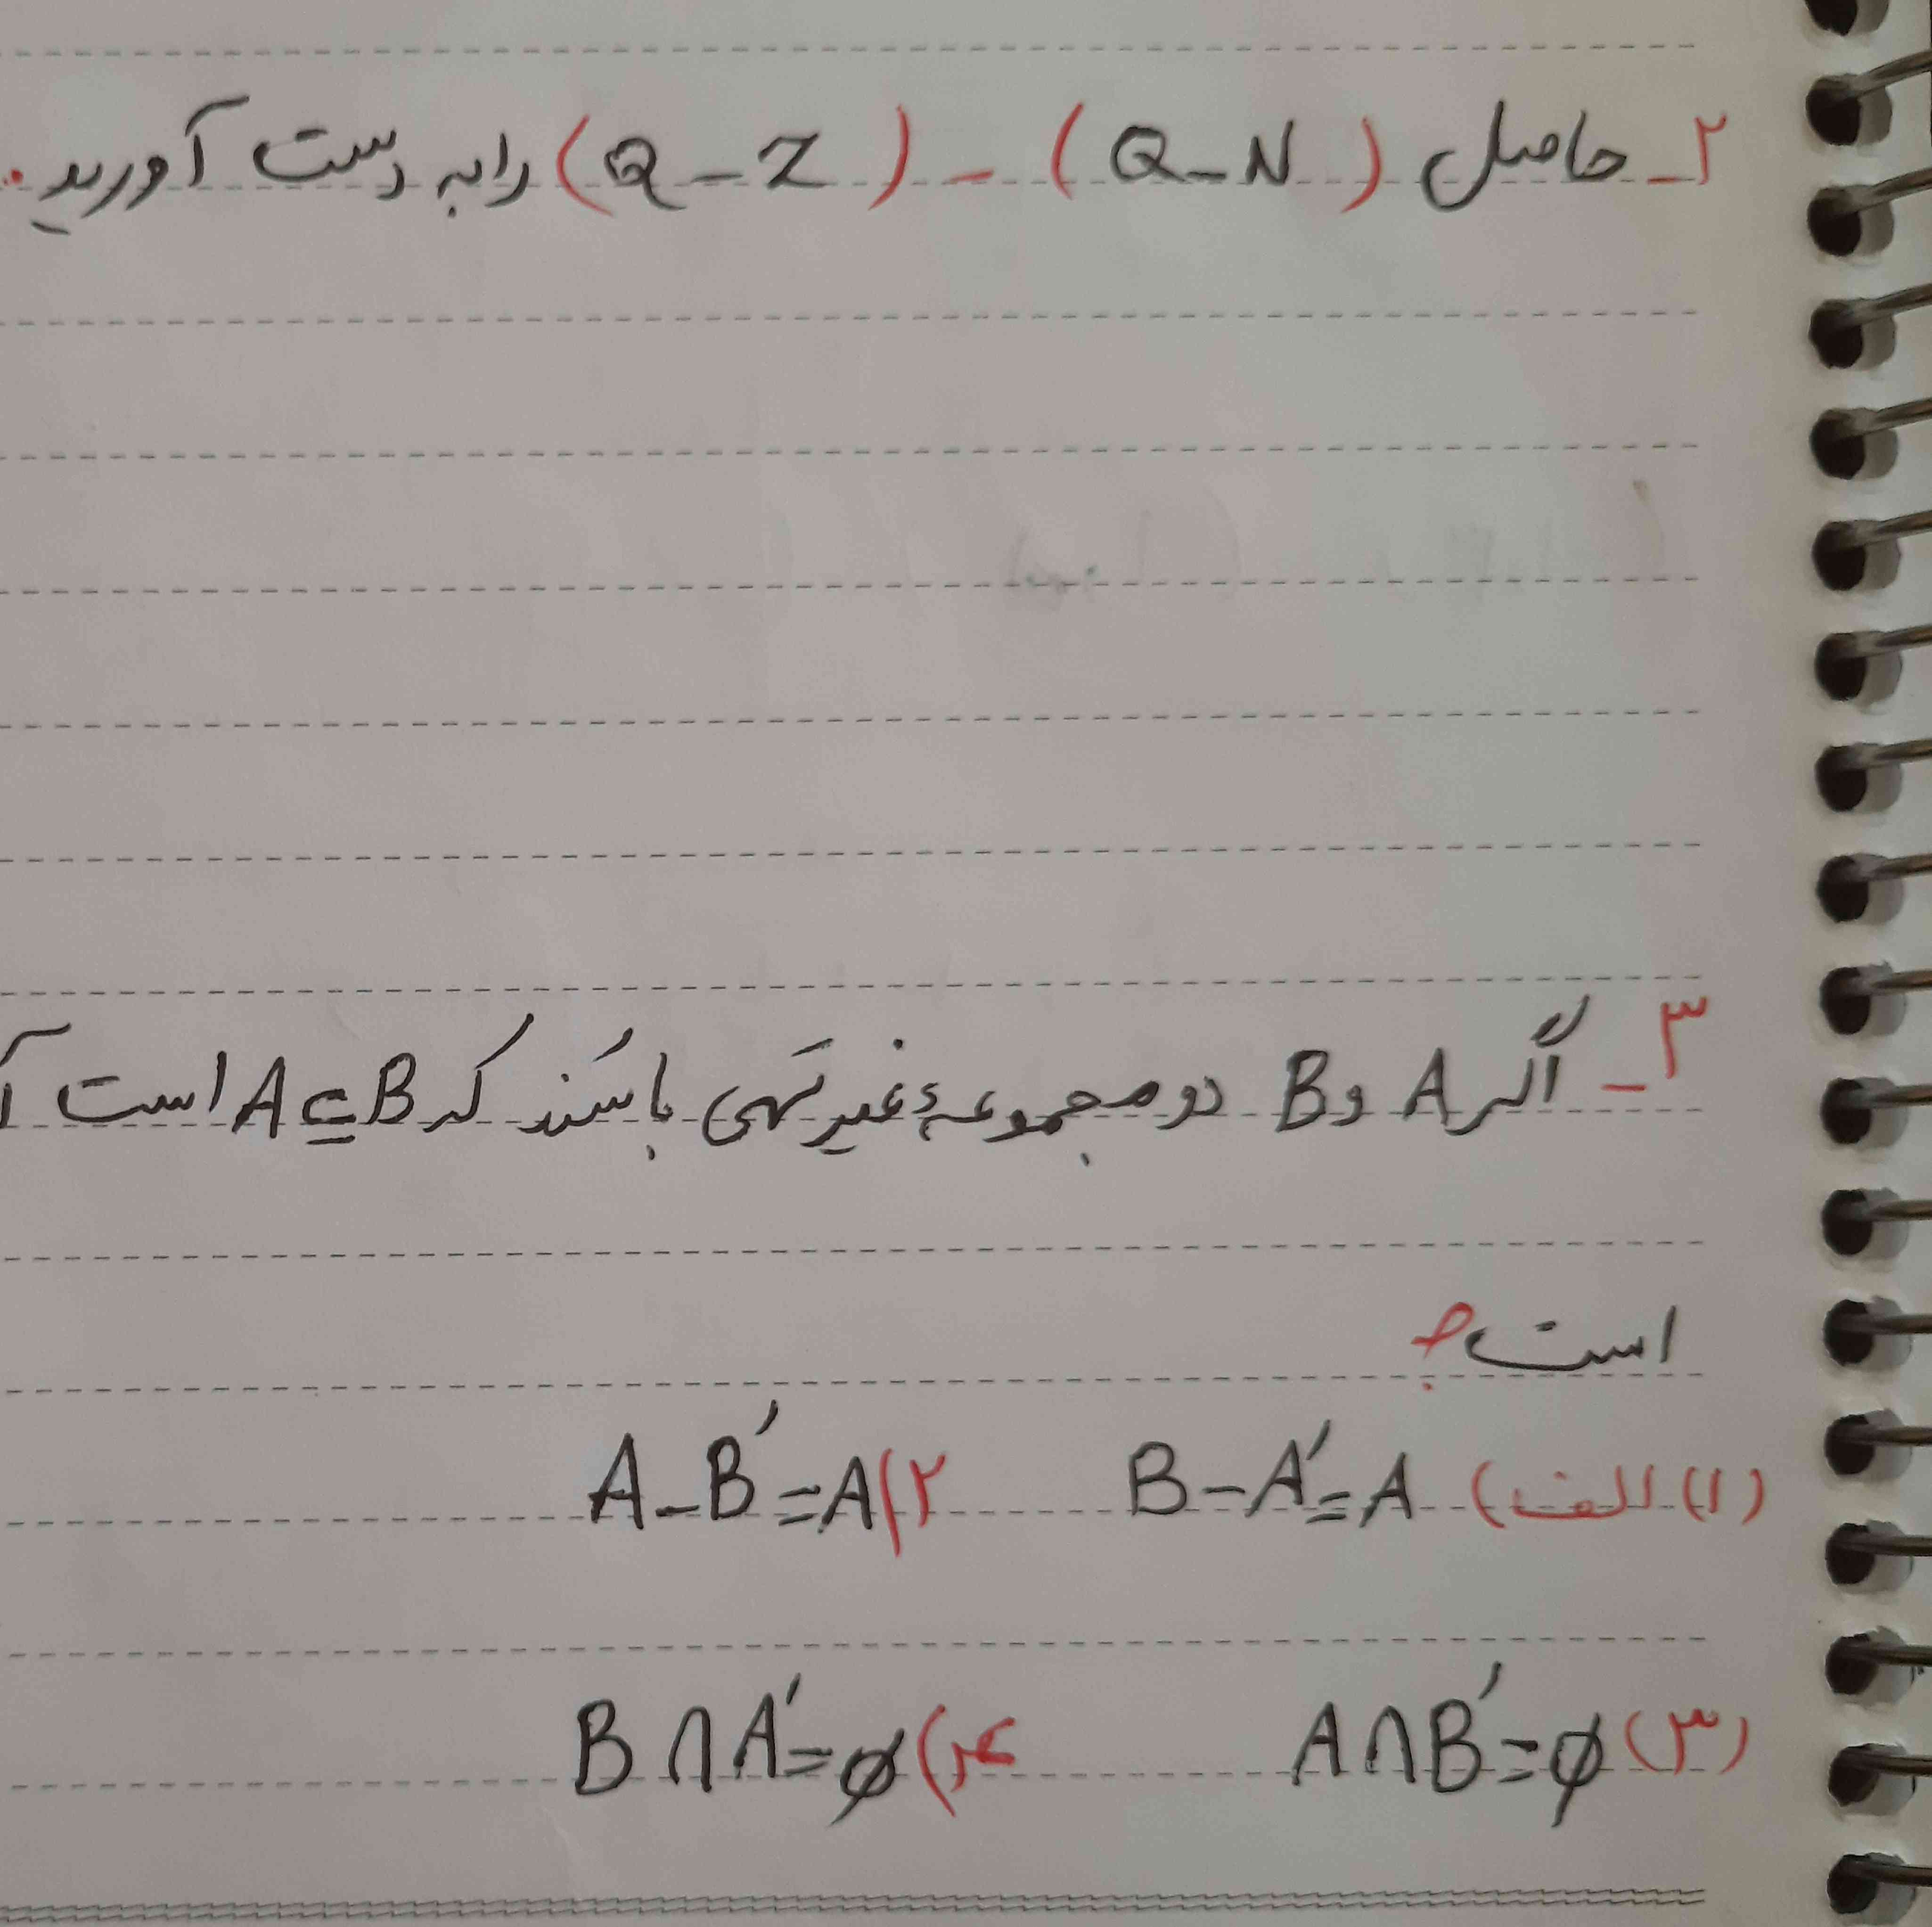 ۲_ حاصل (Q-N) - (Q-Z) را به دست آورید.
۳_ اگر A و B دو مجموعهٔ غیر تهی باشند که A⊆B است
است؟
(۱) الف) B-A'=A ۲) A-B'=A
(۳) A∩B'=ø ۴) B∩A'=ø